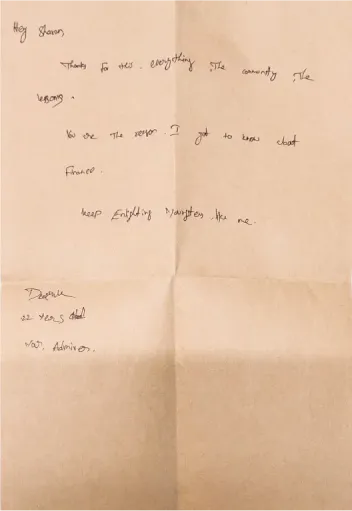 Hey Sharan
Thanks for everything. The community, the
lessons.
You are the reason I got to know about
Finance.
Keep Youngsters like me.
22 years old
Your Admirer.